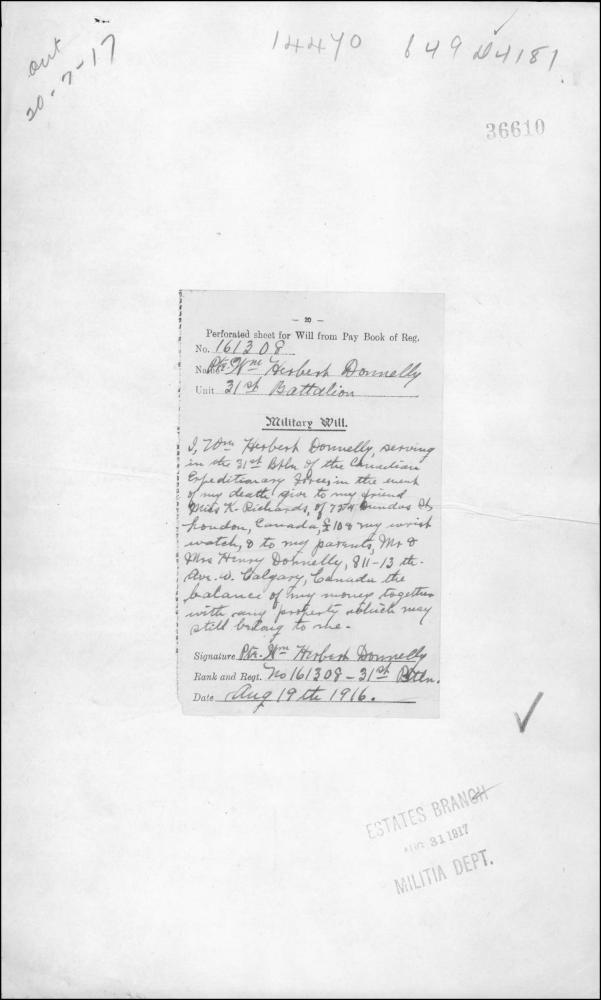 out
20-7-17
14470 649 D4181
36610
— 20 —
Perforated sheet for Will from Pay Book of Reg.
No. 161308
Name Pte. Wm Herbert Donnelly
Unit 31st Battalion
Military Will.
I, Wm Herbert Donnelly, serving
in the 31st Btln of the Canadian
Expeditionary Forces, in the event
of my death give to my friend
Miss K. Richards, of Dundas St,
London, Canada, £10 & my wrist
watch, & to my parents, Mr &
Mrs Henry Donnelly, 811-13 th.
Ave. W. Calgary, Canada the
balance of my money together
with any property which may
still belong to me-
Signature Pte. Wm Herbert Donnelly
Rank and Regt. No 161308 - 31st Batln.
Date Aug 19th 1916.
ESTATES BRANCH
AUG 31 1917
MILITIA DEPT.